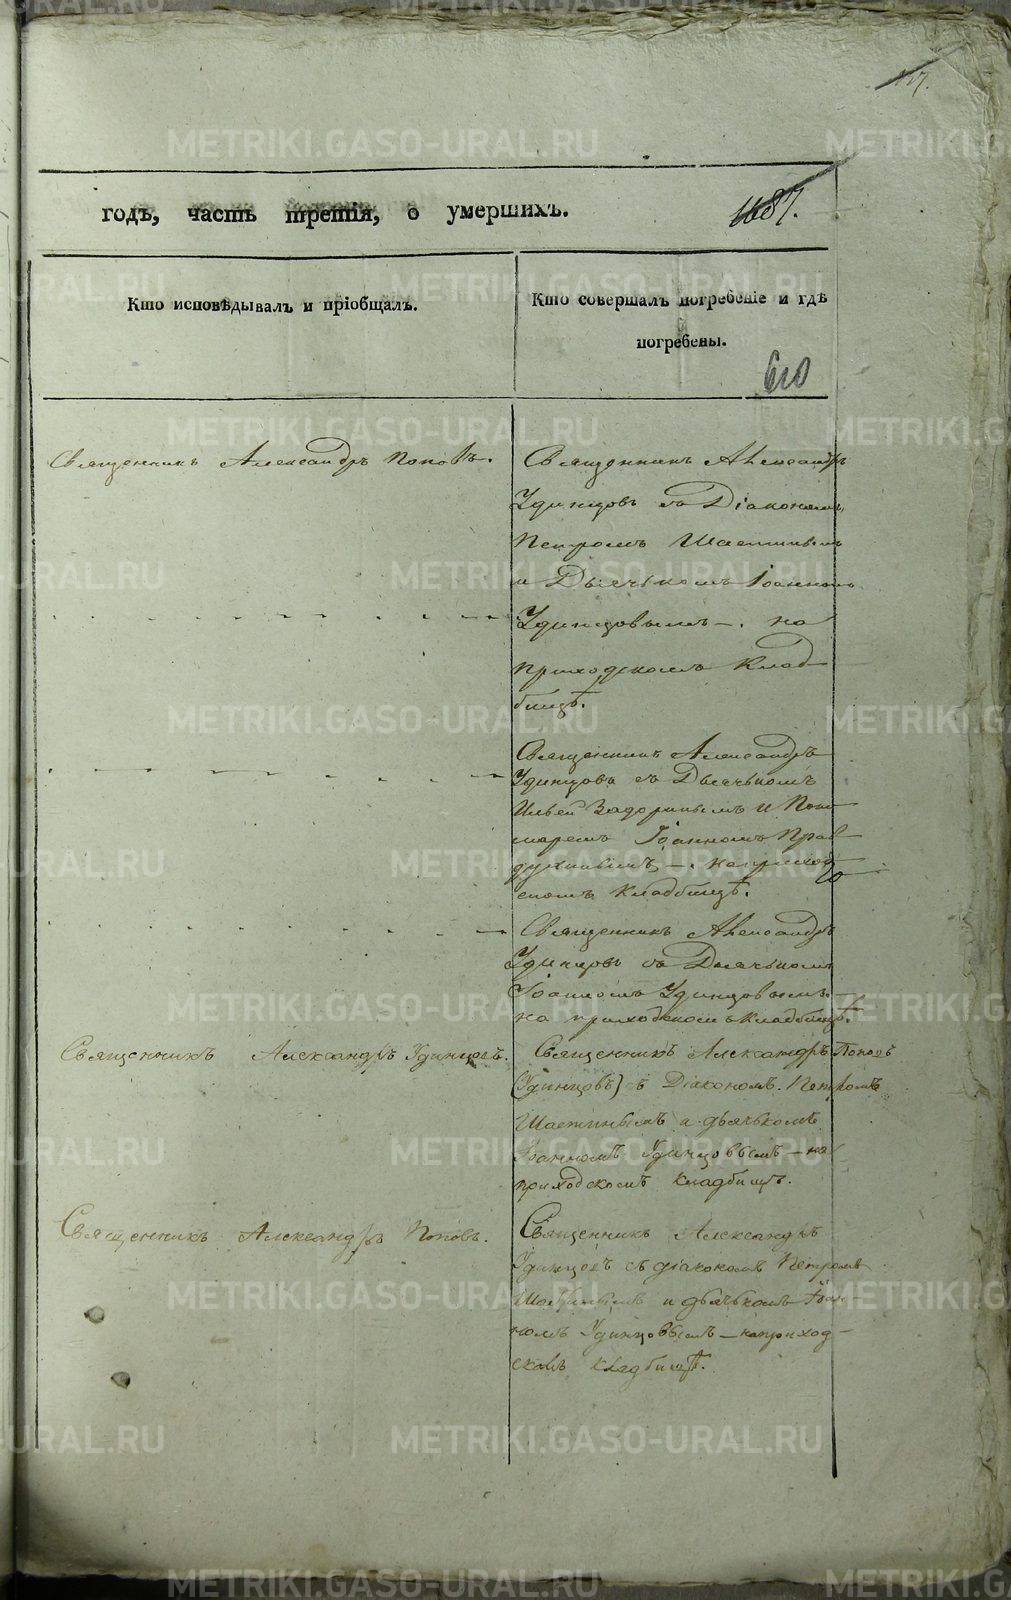 127.
годъ, часть третія, о умершихъ.
1687.
Кто исповѣдывалъ и пріобщалъ.
Кто совершалъ погребеніе и гдѣ
погребены.
610
Священникъ Александръ Поповъ.
Священникъ Александръ
Удинцовъ съ Діакономъ
Петромъ Шастинымъ
и Дьячькомъ Іоанномъ
Удинцовымъ —. на
приходскомъ клад-
бищѣ.
Священникъ Александръ
Удинцовъ съ Дьячькомъ
Ильей Задоринымъ и Поно-
маремъ Іоанномъ Прав-
— на приход-
скомъ кладбищѣ.
Священникъ Александръ
Удинцовъ съ Дьячькомъ
Іоанномъ Удинцовымъ.
на приходскомъ кладбищѣ.
Священникъ Александръ Удинцовъ.
Священникъ Александръ Поповъ
(Удинцовъ) съ Діакономъ Петромъ
Шастинымъ и дьячькомъ
Іоанномъ Удинцовымъ — на
приходскомъ кладбищѣ.
Священникъ Александръ Поповъ.
Священникъ Александръ
Удинцовъ съ діакономъ Петромъ
Шастинымъ и дьячькомъ Іоан-
номъ Удинцовымъ — на приход-
скомъ кладбищѣ.
METRIKI.GASO-URAL.RU